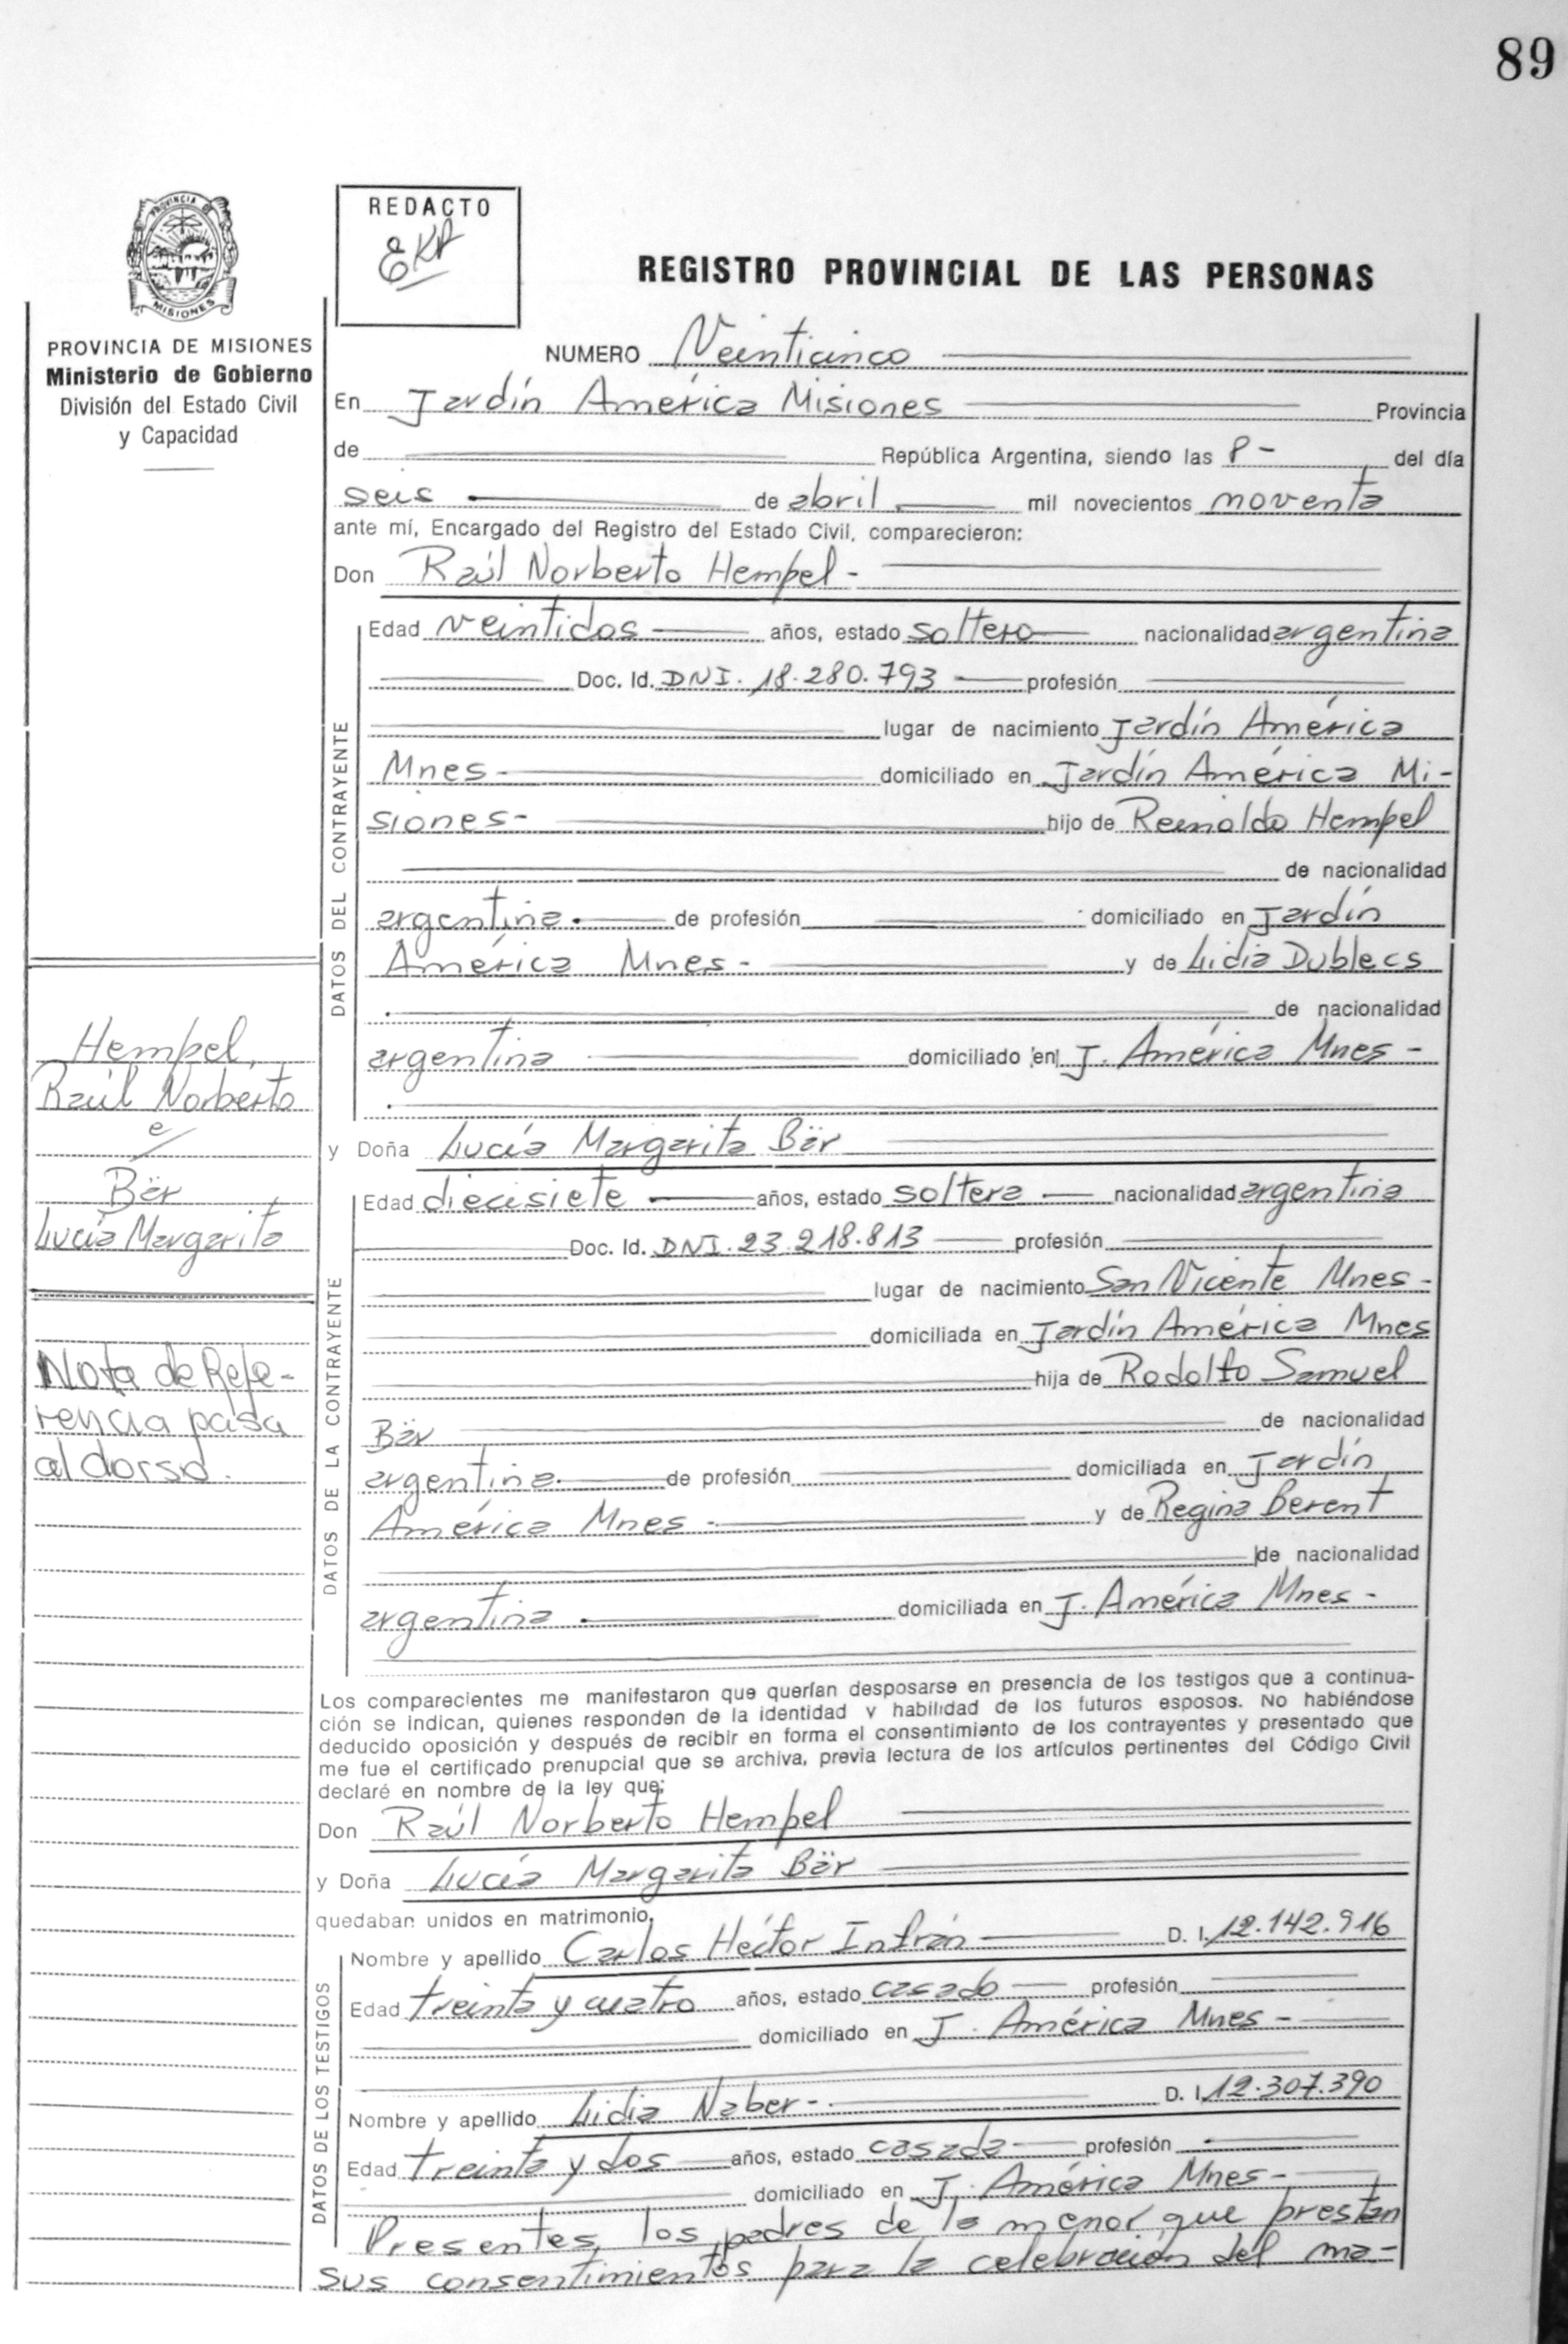 89
PROVINCIA DE
MISIONES
PROVINCIA DE MISIONES
Ministerio de Gobierno
División del Estado Civil
y Capacidad
REDACTO
EKA
REGISTRO PROVINCIAL DE LAS PERSONAS
NUMERO Veinticinco
En Jardín América Misiones Provincia
de República Argentina, siendo las 8 - del día
seis de abril mil novecientos noventa
ante mí, Encargado del Registro del Estado Civil, comparecieron:
Don Raúl Norberto Hempel -
DATOS DEL CONTRAYENTE
Edad veintidos años, estado soltero nacionalidad argentina
Doc. Id. DNI. 18.280.793 profesión
lugar de nacimiento Jardín América
Mnes - domiciliado en Jardín América Mi-
siones - hijo de Reinoldo Hempel
de nacionalidad
argentina. de profesión domiciliado en Jardín
América Mnes - y de Lidia Dublecs
de nacionalidad
argentina domiciliado en J. América Mnes -
Hempel,
Raúl Norberto
e/
Bär
Lucía Margarita
y Doña Lucía Margarita Bär
DATOS DE LA CONTRAYENTE
Edad diecisiete años, estado soltera nacionalidad argentina
Doc. Id. DNI. 23.218.813 profesión
lugar de nacimiento San Vicente Mnes -
domiciliada en Jardín América Mnes
hija de Rodolfo Samuel
Bär de nacionalidad
argentina de profesión domiciliada en Jardín
América Mnes - y de Regina Berent
de nacionalidad
argentina domiciliada en J. América Mnes -
Nota de Refe-
rencia pasa
al dorso.
Los comparecientes me manifestaron que querían desposarse en presencia de los testigos que a continua-
ción se indican, quienes responden de la identidad y habilidad de los futuros esposos. No habiéndose
deducido oposición y después de recibir en forma el consentimiento de los contrayentes y presentado que
me fue el certificado prenupcial que se archiva, previa lectura de los artículos pertinentes del Código Civil
declaré en nombre de la ley que:
Don Raúl Norberto Hempel
y Doña Lucía Margarita Bär
quedaban unidos en matrimonio.
DATOS DE LOS TESTIGOS
Nombre y apellido Carlos Héctor Infrán D. I. 12.142.916
Edad treinta y cuatro años, estado casado profesión
domiciliado en J. América Mnes -
Nombre y apellido Lidia Naber - D. I. 12.307.390
Edad treinta y dos años, estado casada profesión
domiciliado en J. América Mnes -
Presentes, los padres de la menor que prestan
sus consentimientos para la celebración del ma-